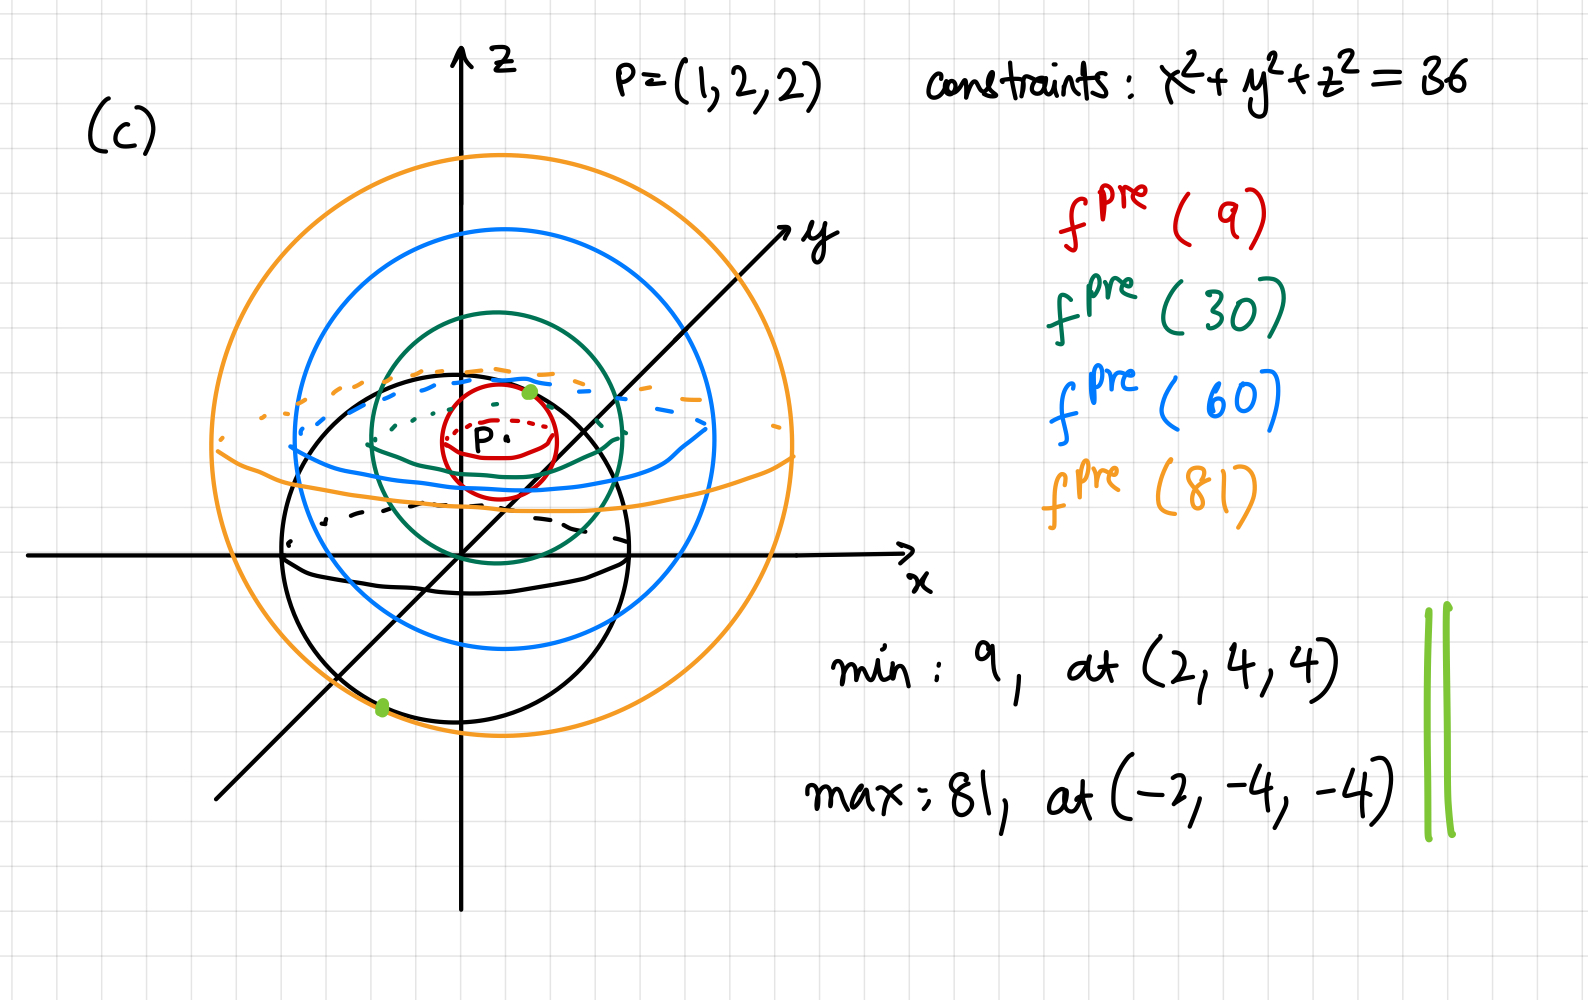 z
P=(1,2,2)
constraints: x²+y²+z²=36
(c)
f^pre(9)
y
f^pre(30)
f^pre(60)
P.
f^pre(81)
x
min: 9, at (2,4,4)
max: 81, at (-2,-4,-4)